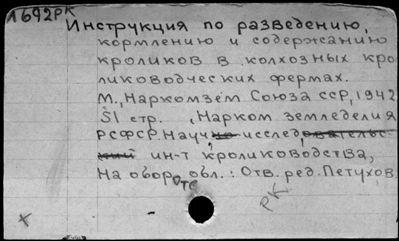 А692РК
Инструкция по разведению,
кормлению и содержанию
кроликов в колхозных кро
лиководческих фермах.
М., Наркомзем Союза ССР, 1942
51 стр. , Нарком земледелия
РСФСР. Научно исследовательс-
кий ин-т кролиководства,
На обор. отс обл.: Отв. ред. Петухов.
РК
х